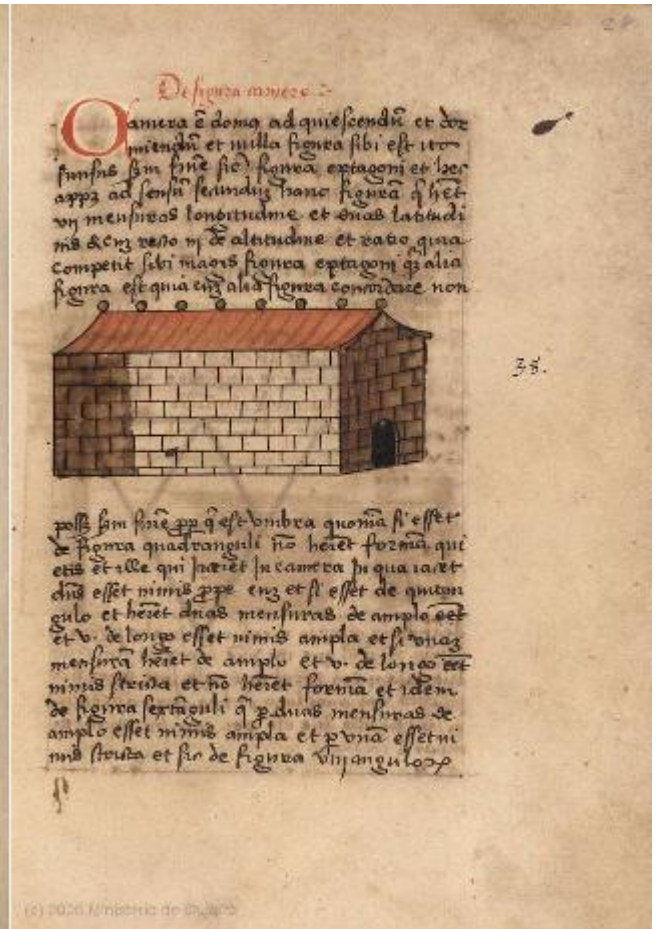 De figura camere
Camera ē domus ad quiescendū et dor
miendū et nulla figura sibi est ita
sicut figura eptagoni et hec
appꝫ ad sensū secundū hanc figurā q̄ hēt
vii mensuras longitudine et duas latitudi
nis de altitudine et ratio quia
competit sibi magis figura eptagoni qꝫ alia
figura est quia cuꝫ alia figura concordare non
38.
possꝫ q̄ est vmbra quoniā si esset
de figura quadranguli nō hēret formā qui
etis et ille qui in camera in qua iacet
dūs esset nimis prope euꝫ et si esset de quītan
gulo et hēret duas mensuras de amplo
et v. de longo esset nimis ampla et si vnaꝫ
mensurā hēret de amplo et v. de longo
nimis stricta et nō hēret formā et idem
de figura sextāguli q̄ ꝑ duas mensuras de
amplo esset nimis ampla et ꝑ vnā esset ni
mis stricta et sic de figura
(c) 2006 Ministerio de Cultura